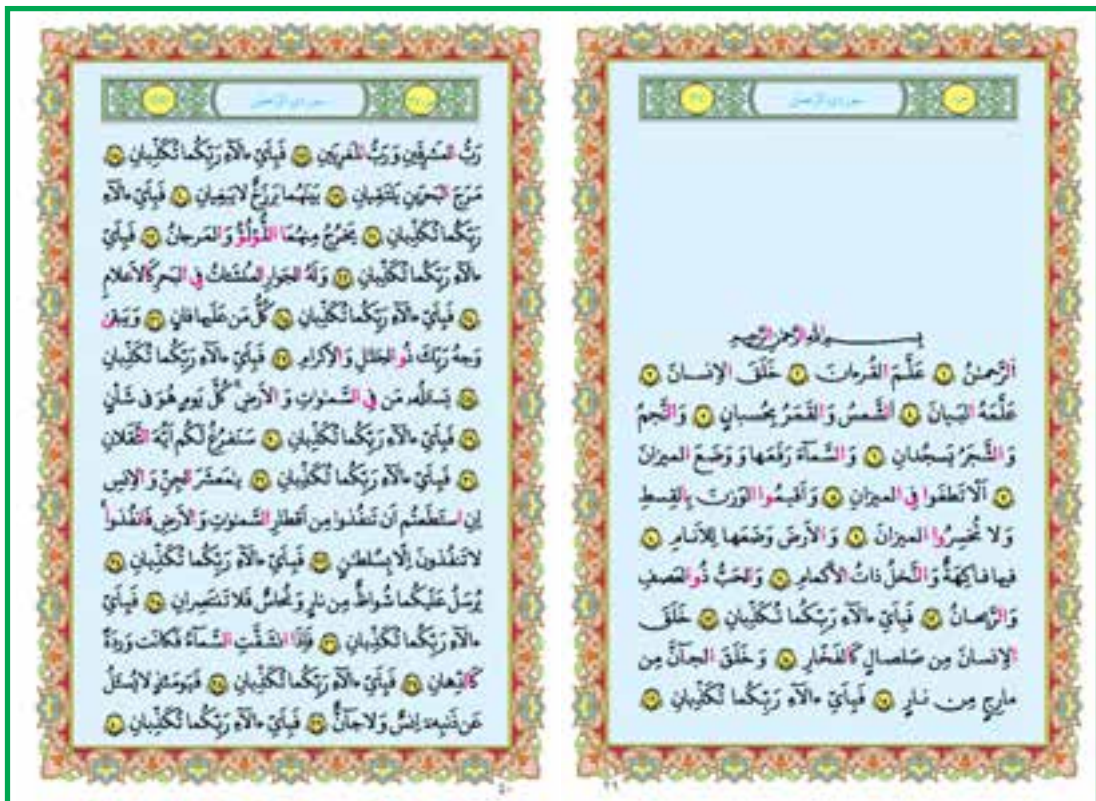 سوره‌ی الرّحمن
بِسمِ اللهِ الرَّحمٰنِ الرَّحیمِ
اَلرَّحمٰنُ ١ عَلَّمَ القُرءانَ ٢ خَلَقَ الاِنسانَ ٣
عَلَّمَهُ البَیانَ ٤ اَلشَّمسُ وَ القَمَرُ بِحُسبانٍ ٥ وَ النَّجمُ
وَ الشَّجَرُ یَسجُدانِ ٦ وَ السَّمآءَ رَفَعَها وَ وَضَعَ المیزانَ
٧ اَلّا تَطغَوا فِی المیزانِ ٨ وَ اَقیمُوا الوَزنَ بِالقِسطِ
وَ لا تُخسِرُوا المیزانَ ٩ وَ الاَرضَ وَضَعَها لِلاَنامِ ١٠
فیها فاکِهَةٌ وَ النَّخلُ ذاتُ الاَکمامِ ١١ وَ الحَبُّ ذُو العَصفِ
وَ الرَّیحانُ ١٢ فَبِاَیِّ ءالآءِ رَبِّکُما تُکَذِّبانِ ١٣ خَلَقَ
الاِنسانَ مِن صَلصالٍ کَالفَخّارِ ١٤ وَ خَلَقَ الجآنَّ مِن
مارِجٍ مِن نارٍ ١٥ فَبِاَیِّ ءالآءِ رَبِّکُما تُکَذِّبانِ ١٦
٤٩
سوره‌ی الرّحمن
رَبُّ المَشرِقَینِ وَ رَبُّ المَغرِبَینِ ١٧ فَبِاَیِّ ءالآءِ رَبِّکُما تُکَذِّبانِ ١٨
مَرَجَ البَحرَینِ یَلتَقِیانِ ١٩ بَینَهُما بَرزَخٌ لا یَبغِیانِ ٢٠ فَبِاَیِّ ءالآءِ
رَبِّکُما تُکَذِّبانِ ٢١ یَخرُجُ مِنهُمَا اللُّؤلُؤُ وَ المَرجانُ ٢٢ فَبِاَیِّ
ءالآءِ رَبِّکُما تُکَذِّبانِ ٢٣ وَ لَهُ الجَوارِ المُنشَئاتُ فِی البَحرِ کَالاَعلامِ
٢٤ فَبِاَیِّ ءالآءِ رَبِّکُما تُکَذِّبانِ ٢٥ کُلُّ مَن عَلَیها فانٍ ٢٦ وَ یَبقیٰ
وَجهُ رَبِّکَ ذُو الجَلالِ وَ الاِکرامِ ٢٧ فَبِاَیِّ ءالآءِ رَبِّکُما تُکَذِّبانِ
٢٨ یَسئَلُهُ مَن فِی السَّمٰوٰتِ وَ الاَرضِ کُلَّ یَومٍ هُوَ فی شَأنٍ
٢٩ فَبِاَیِّ ءالآءِ رَبِّکُما تُکَذِّبانِ ٣٠ سَنَفرُغُ لَکُم اَیُّهَ الثَّقَلانِ
٣١ فَبِاَیِّ ءالآءِ رَبِّکُما تُکَذِّبانِ ٣٢ یٰمَعشَرَ الجِنِّ وَ الاِنسِ
اِنِ استَطَعتُم اَن تَنفُذوا مِن اَقطارِ السَّمٰوٰتِ وَ الاَرضِ فَانفُذوا
لا تَنفُذونَ اِلّا بِسُلطٰنٍ ٣٣ فَبِاَیِّ ءالآءِ رَبِّکُما تُکَذِّبانِ ٣٤
یُرسَلُ عَلَیکُما شُواظٌ مِن نارٍ وَ نُحاسٌ فَلا تَنتَصِرانِ ٣٥ فَبِاَیِّ
ءالآءِ رَبِّکُما تُکَذِّبانِ ٣٦ فَاِذَا انشَقَّتِ السَّمآءُ فَکانَت وَردَةً
کَالدِّهانِ ٣٧ فَبِاَیِّ ءالآءِ رَبِّکُما تُکَذِّبانِ ٣٨ فَیَومَئِذٍ لا یُسئَلُ
عَن ذَنبِهِ اِنسٌ وَ لا جآنٌّ ٣٩ فَبِاَیِّ ءالآءِ رَبِّکُما تُکَذِّبانِ ٤٠
٥٠